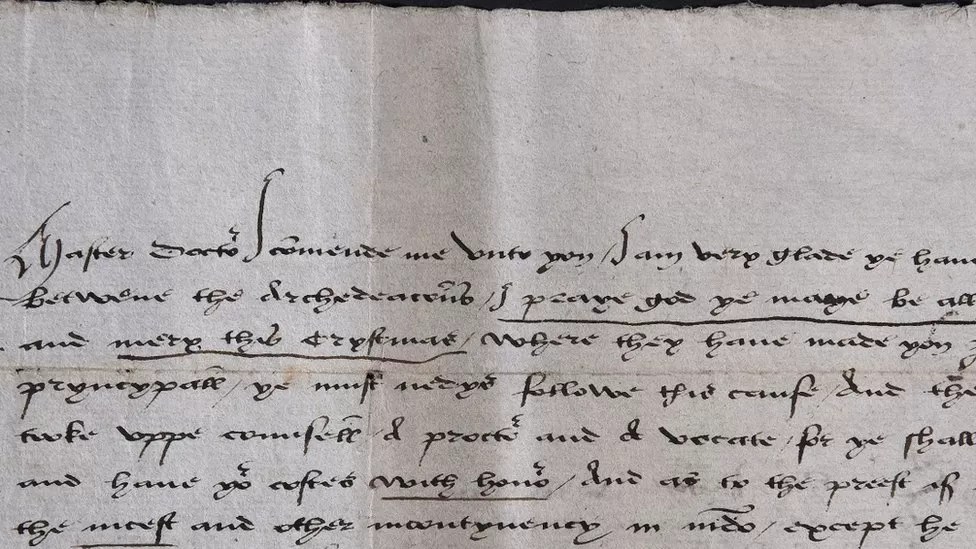 Master Doctor I comende me unto you / I am very glade ye have
Betwene the Archedeacons / I praye god ye maye be all
and mery this Crystmas / where they have made you
pryncypall / ye must nedys followe this cause / And the
tooke uppe counsell / A proctor and A vocate / for ye shall
and have yor costes with honor / And as to the preest if
the incest and other incontynency in / except he